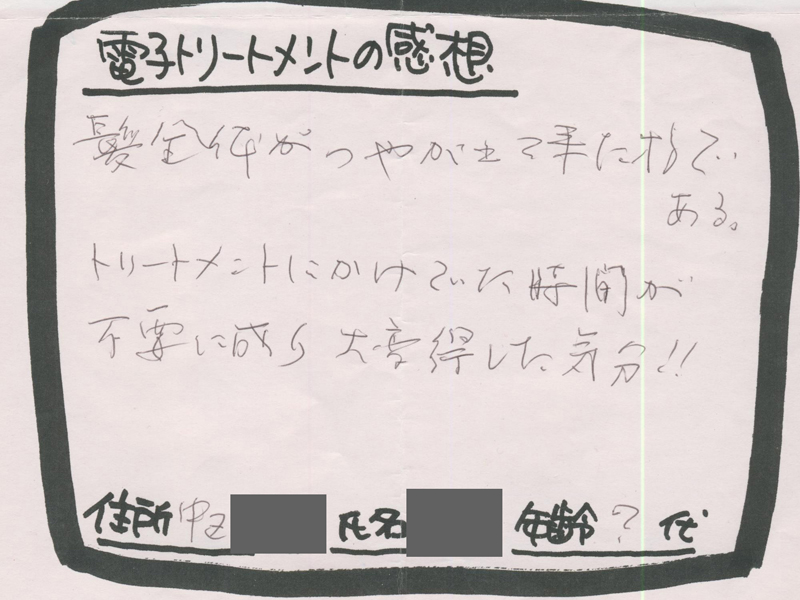 電子トリートメントの感想
髪全体がつやが出て来た様で
ある。
トリートメントにかけていた時間が
不要に成り 大変得した気分!!
住所 中区 氏名 年齢 ? 代